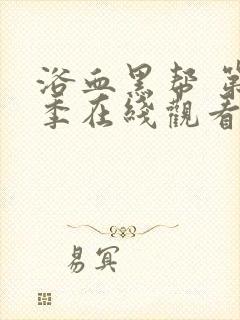 浴血黑帮 第
季在线觀看
易冥